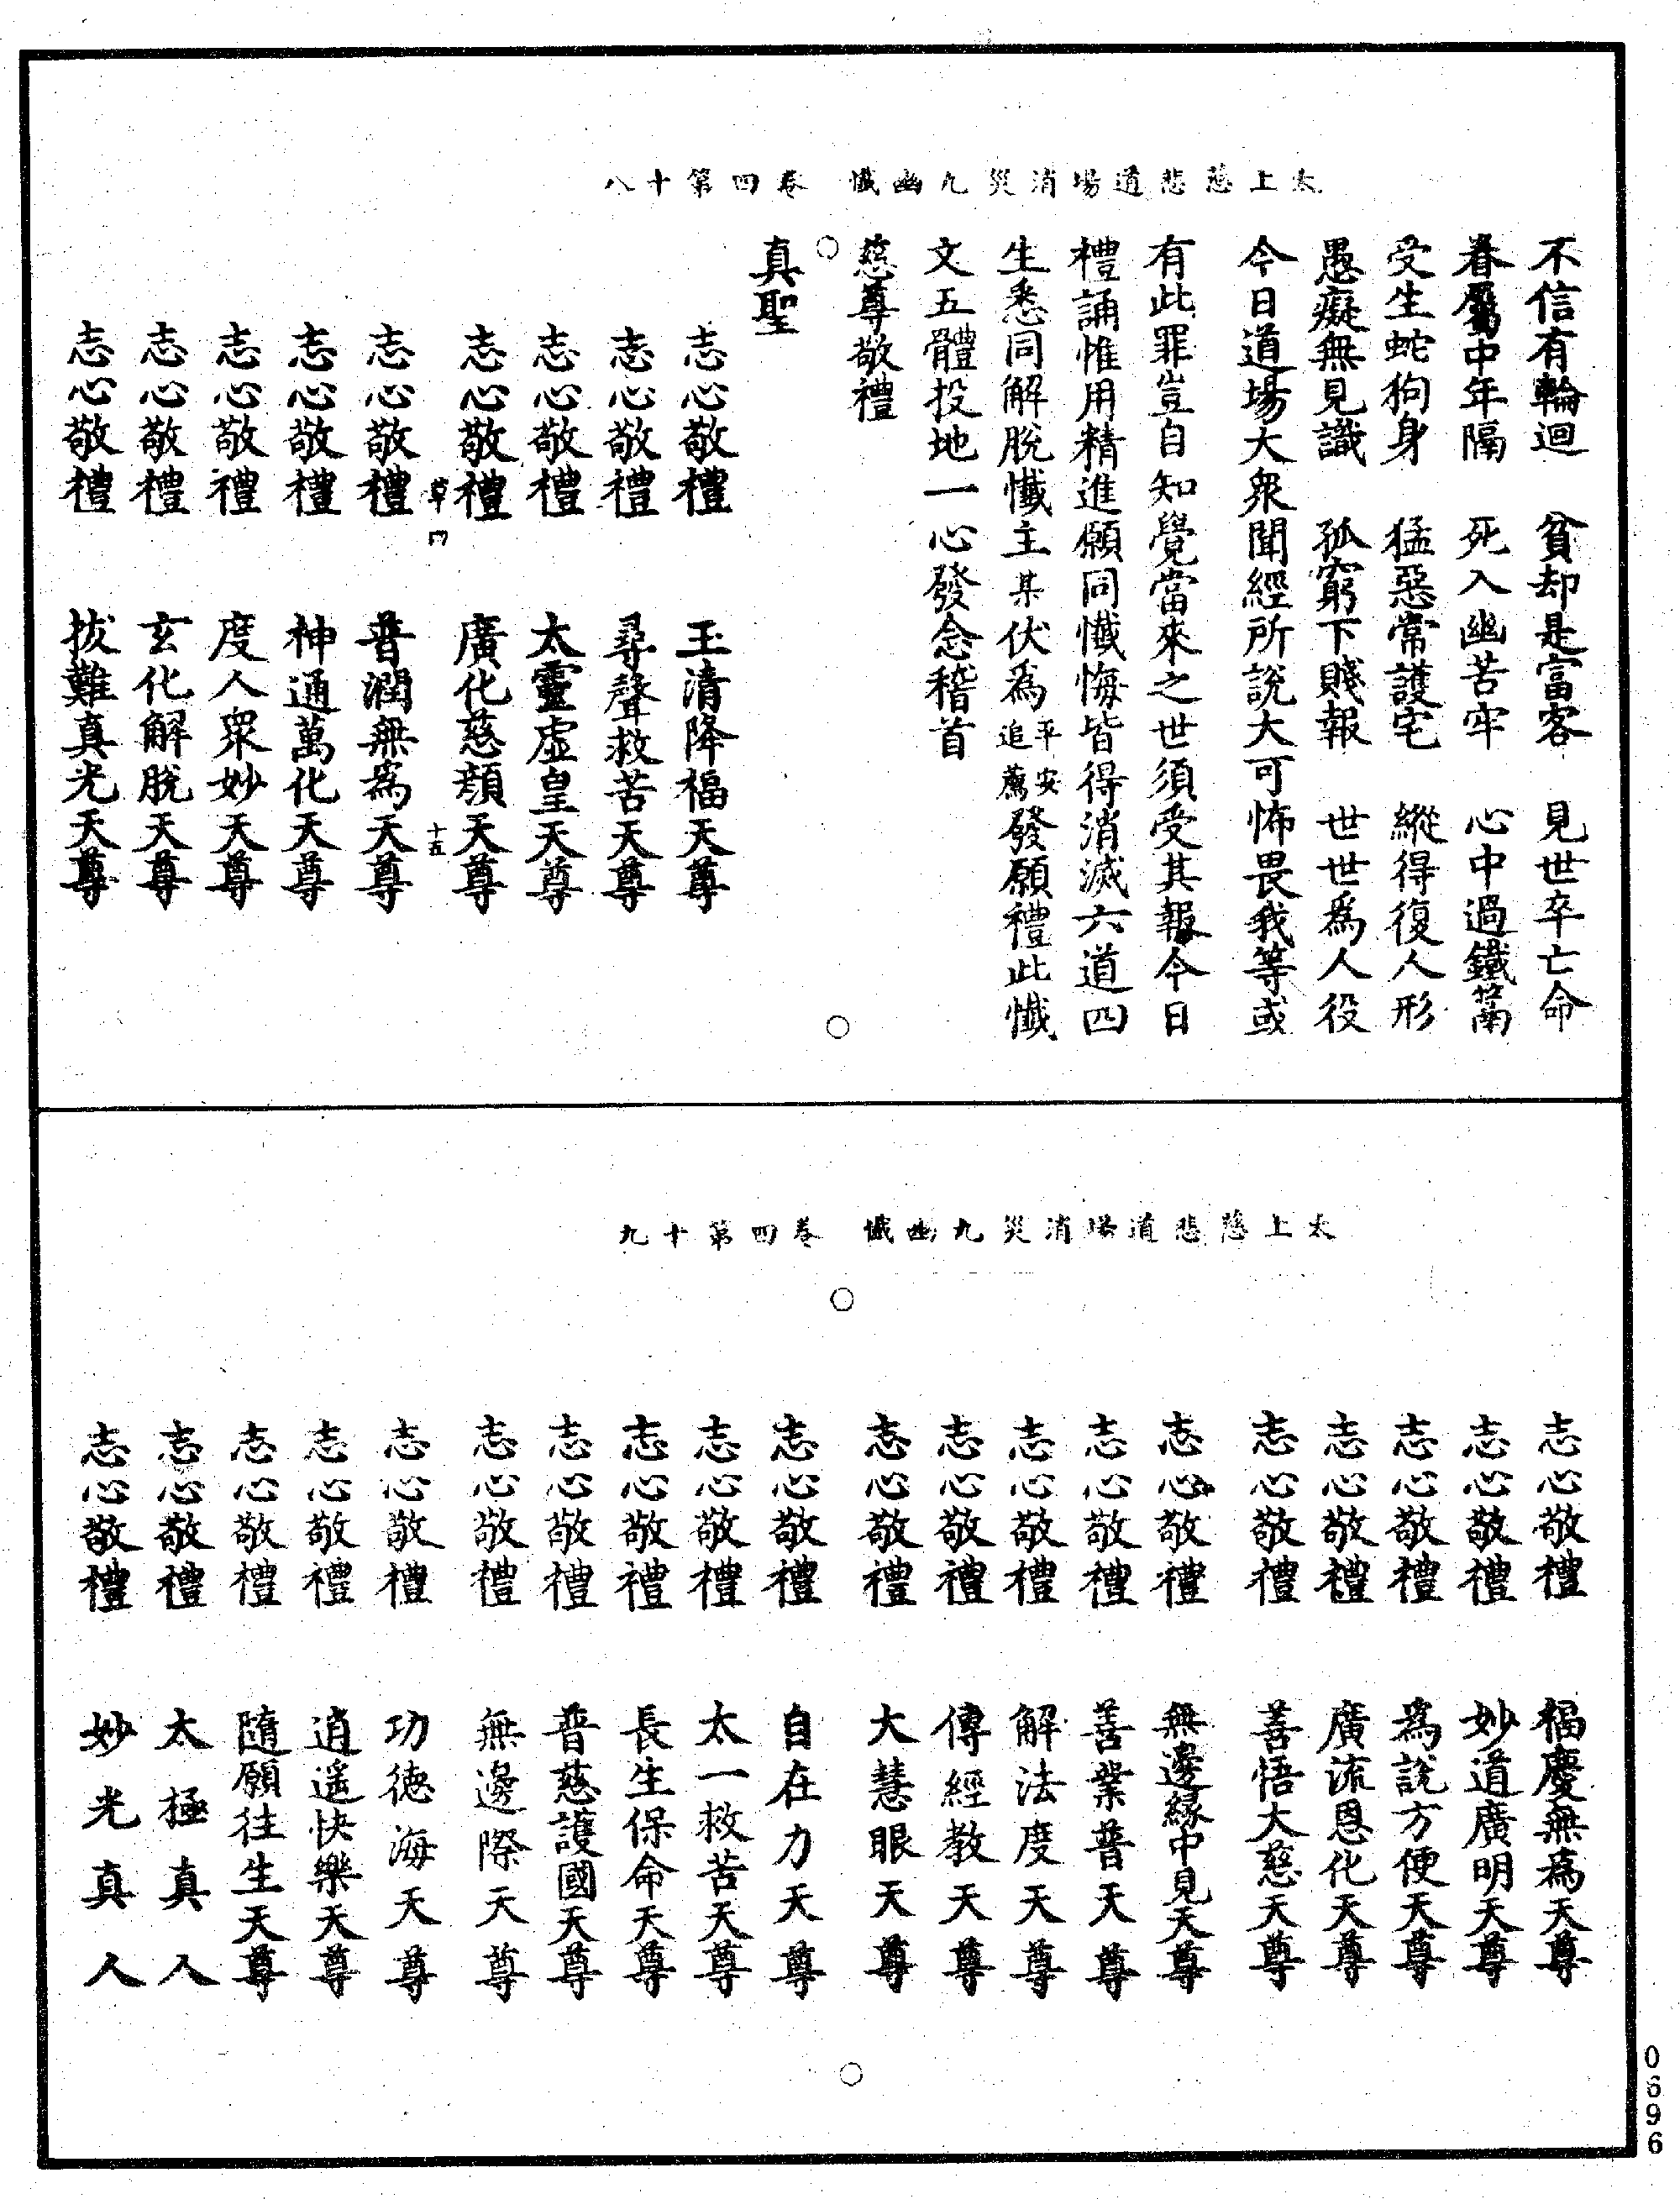 太上慈悲道場消災九幽懺　卷四第十八
不信有輪迴　貧却是富客　見世卒亡命
眷屬中年隔　死入幽苦牢　心中過鐵䈪
受生蛇狗身　猛惡常護宅　縱得復人形
愚癡無見識　孤窮下賤報　世世為人役
今日道場大衆聞經所說大可怖畏我等或
有此罪豈自知覺當來之世須受其報今日
禮誦惟用精進願同懺悔皆得消滅六道四
生悉同解脫懺主某伏為平安追薦發願禮此懺
文五體投地一心發念稽首
慈尊敬禮
真聖
志心敬禮　玉清降福天尊
志心敬禮　尋聲救苦天尊
志心敬禮　太靈虛皇天尊
志心敬禮　廣化慈顏天尊
草四　十五
志心敬禮　普潤無為天尊
志心敬禮　神通萬化天尊
志心敬禮　度人衆妙天尊
志心敬禮　玄化解脫天尊
志心敬禮　拔難真光天尊
太上慈悲道場消災九幽懺　卷四第十九
志心敬禮　福慶無為天尊
志心敬禮　妙道廣明天尊
志心敬禮　為說方便天尊
志心敬禮　廣流恩化天尊
志心敬禮　善悟大慈天尊
志心敬禮　無邊緣中見天尊
志心敬禮　善業普天尊
志心敬禮　解法度天尊
志心敬禮　傳經教天尊
志心敬禮　大慧眼天尊
志心敬禮　自在力天尊
志心敬禮　太一救苦天尊
志心敬禮　長生保命天尊
志心敬禮　普慈護國天尊
志心敬禮　無邊際天尊
志心敬禮　功德海天尊
志心敬禮　逍遙快樂天尊
志心敬禮　隨願往生天尊
志心敬禮　太極真人
志心敬禮　妙光真人
0696